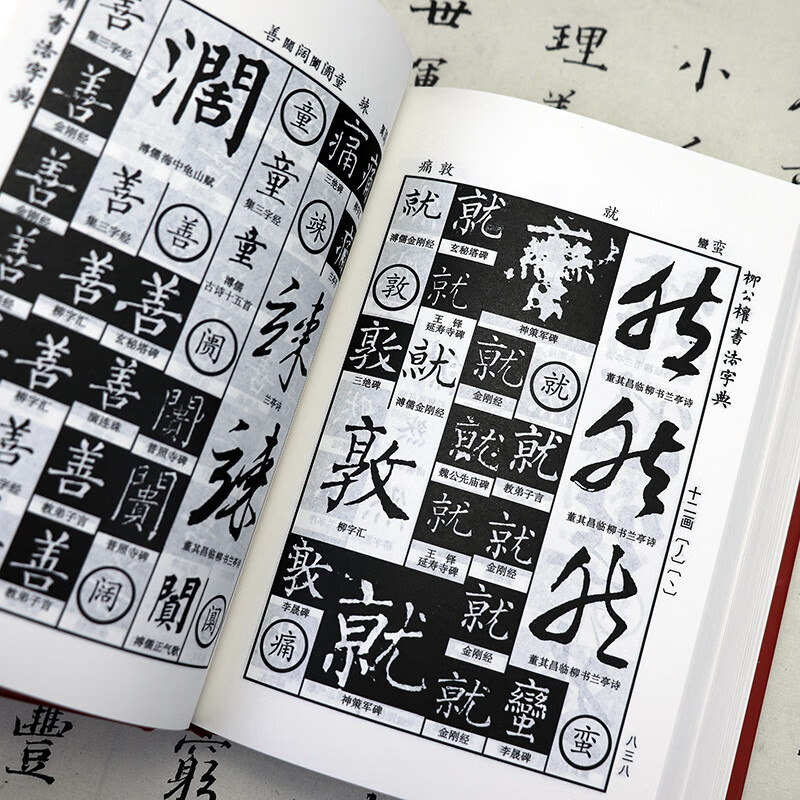 世
理
小
善闊阔阛阓童
竦
权书法字典
集三字经
善
金刚经
善
金刚经
善
集三字经
善
善
柳字汇
善
玄秘塔碑
善
柳字汇
善
演连珠
善
教弟子言
善
教弟子言
善
溃
闠
普照寺碑
闠
普照寺碑
阔
濶
溥儒海中龟山赋
童
童
集三字经
童
溥儒
古诗十五首
竦
竦
兰亭诗
竦
董其昌临柳书兰亭诗
溥儒正气歌
痛
三绝碑
痛敦
就
蠻蛮
柳公權書法字典
十二画〔丿〕〔丶〕
八三八
然
董其昌临柳书兰亭诗
然
董其昌临柳书兰亭诗
然
董其昌临柳书兰亭诗
就
溥儒金刚经
就
玄秘塔碑
蠻
神策军碑
敦
就
王铎
延寿寺碑
敦
三绝碑
就
溥儒金刚经
就
金刚经
就
敦
柳字汇
就
魏公先庙碑
就
教弟子言
就
王铎
延寿寺碑
就
金刚经
敦
李晟碑
就
神策军碑
就
金刚经
痛
就
金刚经
蠻
李晟碑
蛮
豐
窮